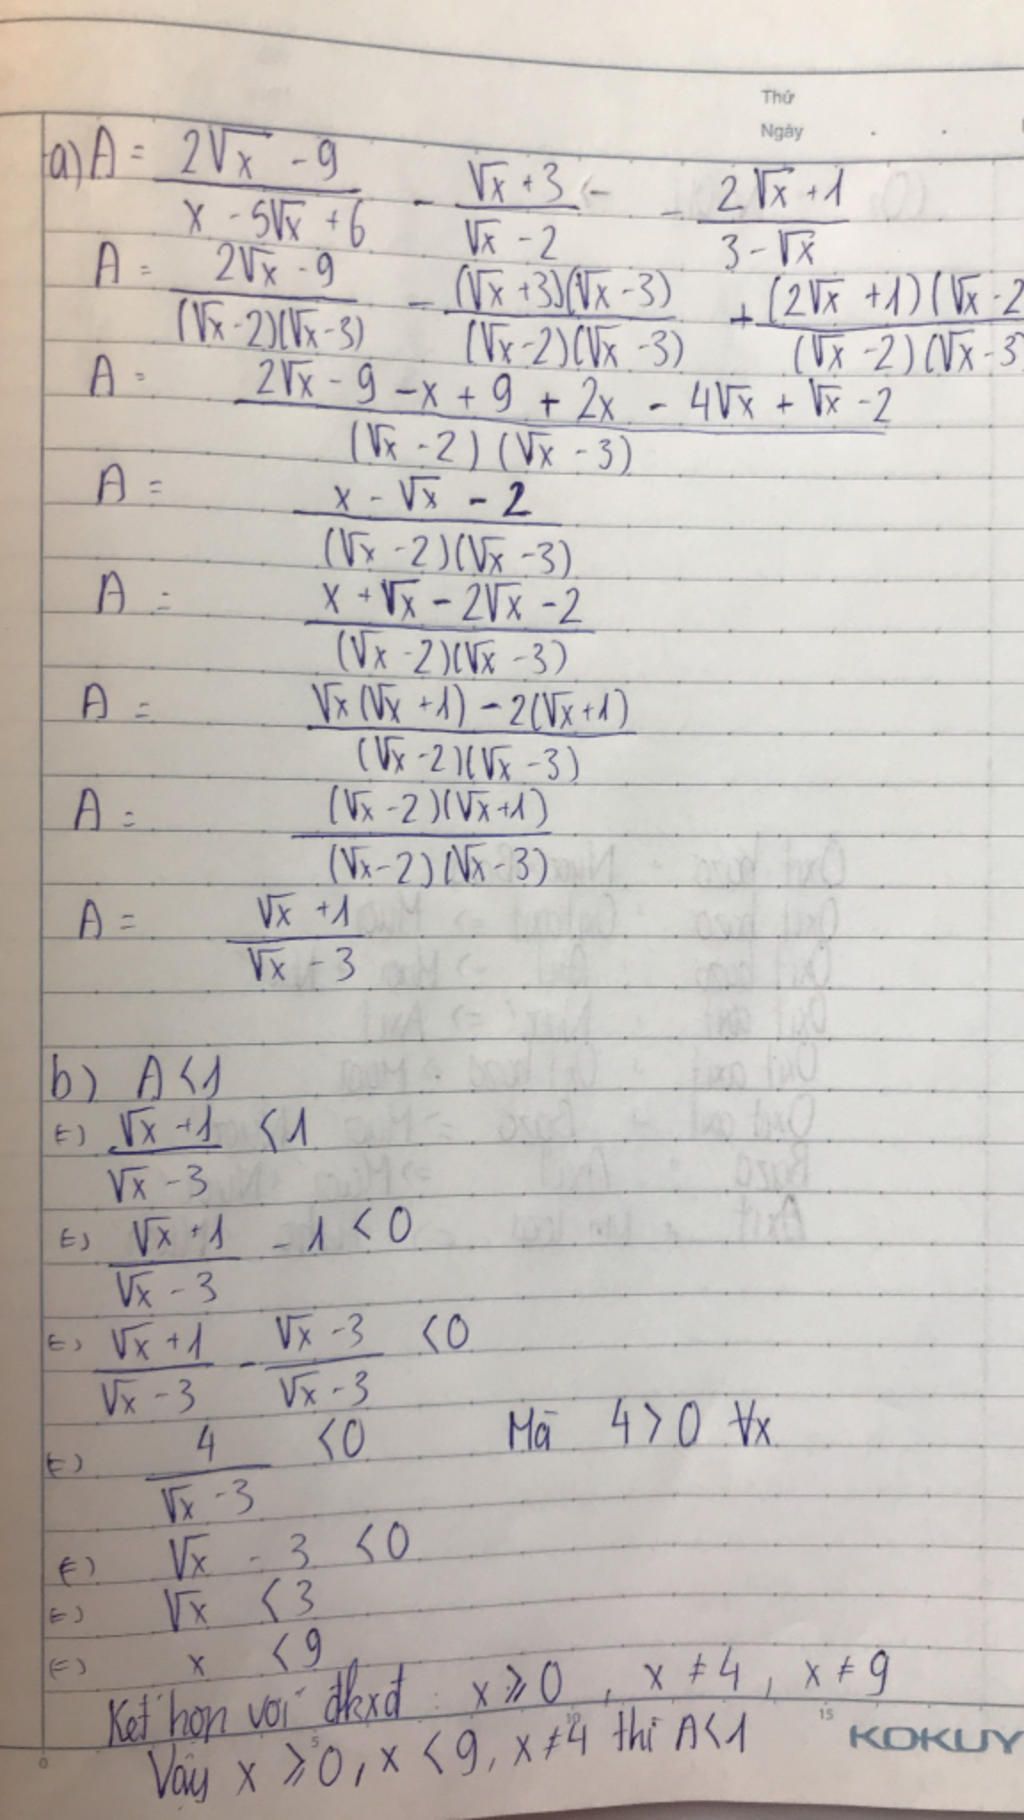 Thứ
Ngày
a) A = (2√x - 9)/(x - 5√x + 6) - (√x + 3)/(√x - 2) - (2√x + 1)/(3 - √x)
A = (2√x - 9)/((√x - 2)(√x - 3)) - ((√x + 3)(√x - 3))/((√x - 2)(√x - 3)) + ((2√x + 1)(√x - 2/((√x - 2)(√x - 3
A = (2√x - 9 - x + 9 + 2x - 4√x + √x - 2)/((√x - 2)(√x - 3))
A = (x - √x - 2)/((√x - 2)(√x - 3))
A = (x + √x - 2√x - 2)/((√x - 2)(√x - 3))
A = (√x(√x + 1) - 2(√x + 1))/((√x - 2)(√x - 3))
A = ((√x - 2)(√x + 1))/((√x - 2)(√x - 3))
A = (√x + 1)/(√x - 3)
b) A < 1
⇔ (√x + 1)/(√x - 3) < 1
⇔ (√x + 1)/(√x - 3) - 1 < 0
⇔ (√x + 1)/(√x - 3) - (√x - 3)/(√x - 3) < 0
⇔ 4/(√x - 3) < 0 Mà 4 > 0 ∀x
⇔ √x - 3 < 0
⇔ √x < 3
⇔ x < 9
Kết hợp với đkxđ : x ⩾ 0 , x ≠ 4 , x ≠ 9
Vậy x ⩾ 0, x < 9, x ≠ 4 thì A < 1
0 5 10 15
KOKUY